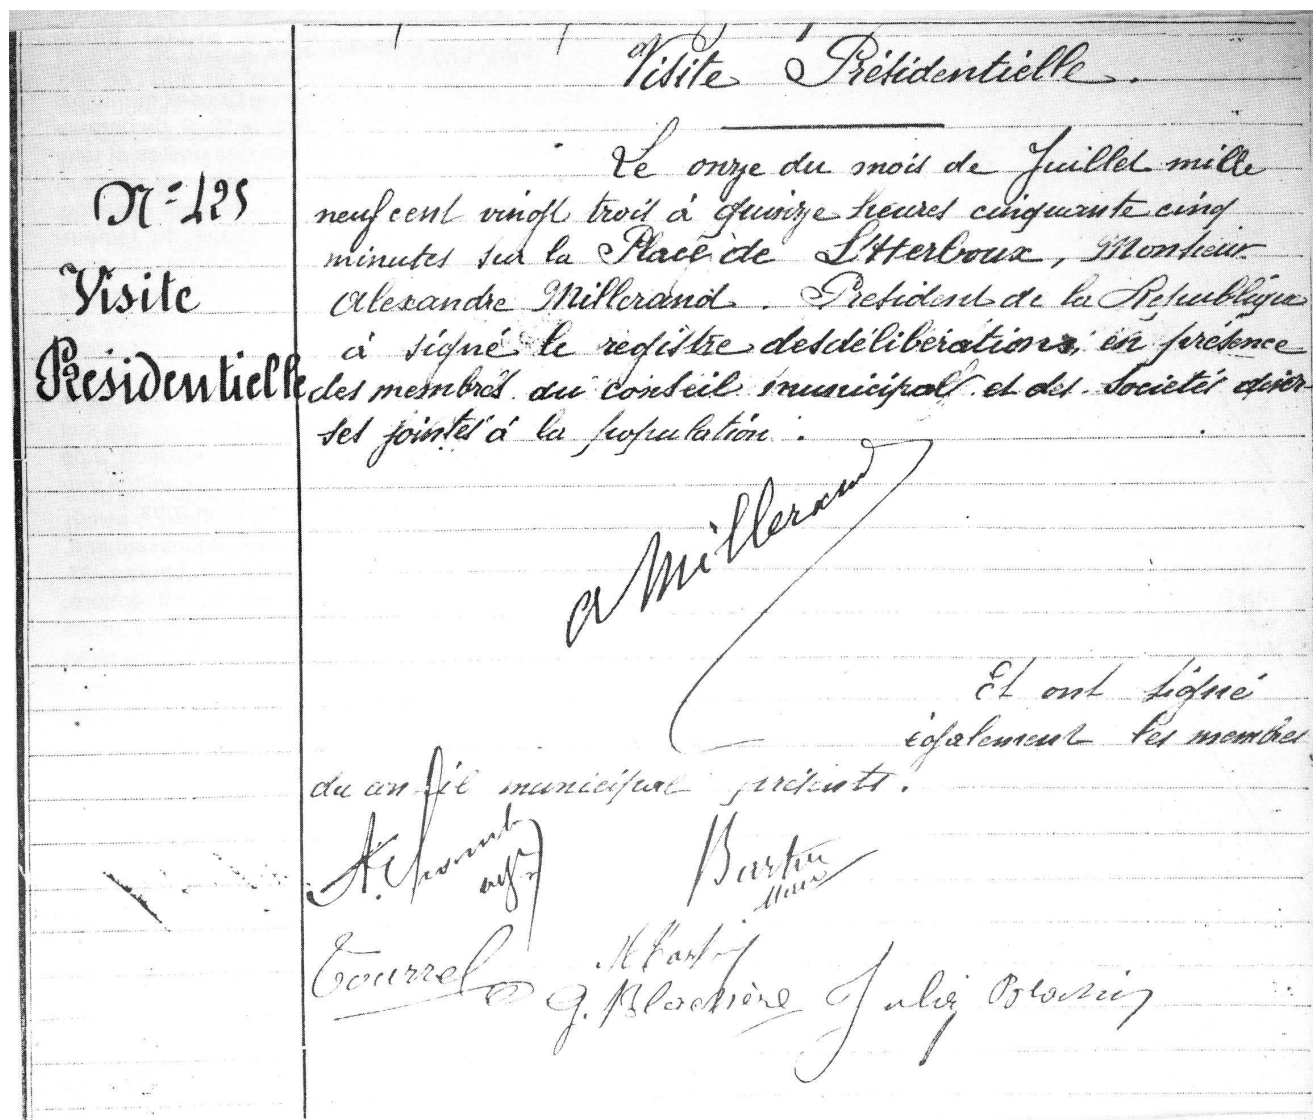 Visite Présidentielle.
Le onze du mois de Juillet mille
N° 425
neuf cent vingt trois à quinze heures cinquante cinq
minutes sur la Place de L'Herboux, Monsieur
Visite
Alexandre Millerand. President de la Republique
à signé le registre des délibérations, en présence
Présidentielle
des membres du conseil municipal et des Societés diver-
ses jointes à la population.
A Millerand
Et ont signé
également les membres
du conseil municipal présents.
Maire
Tourrel
G. Blachière